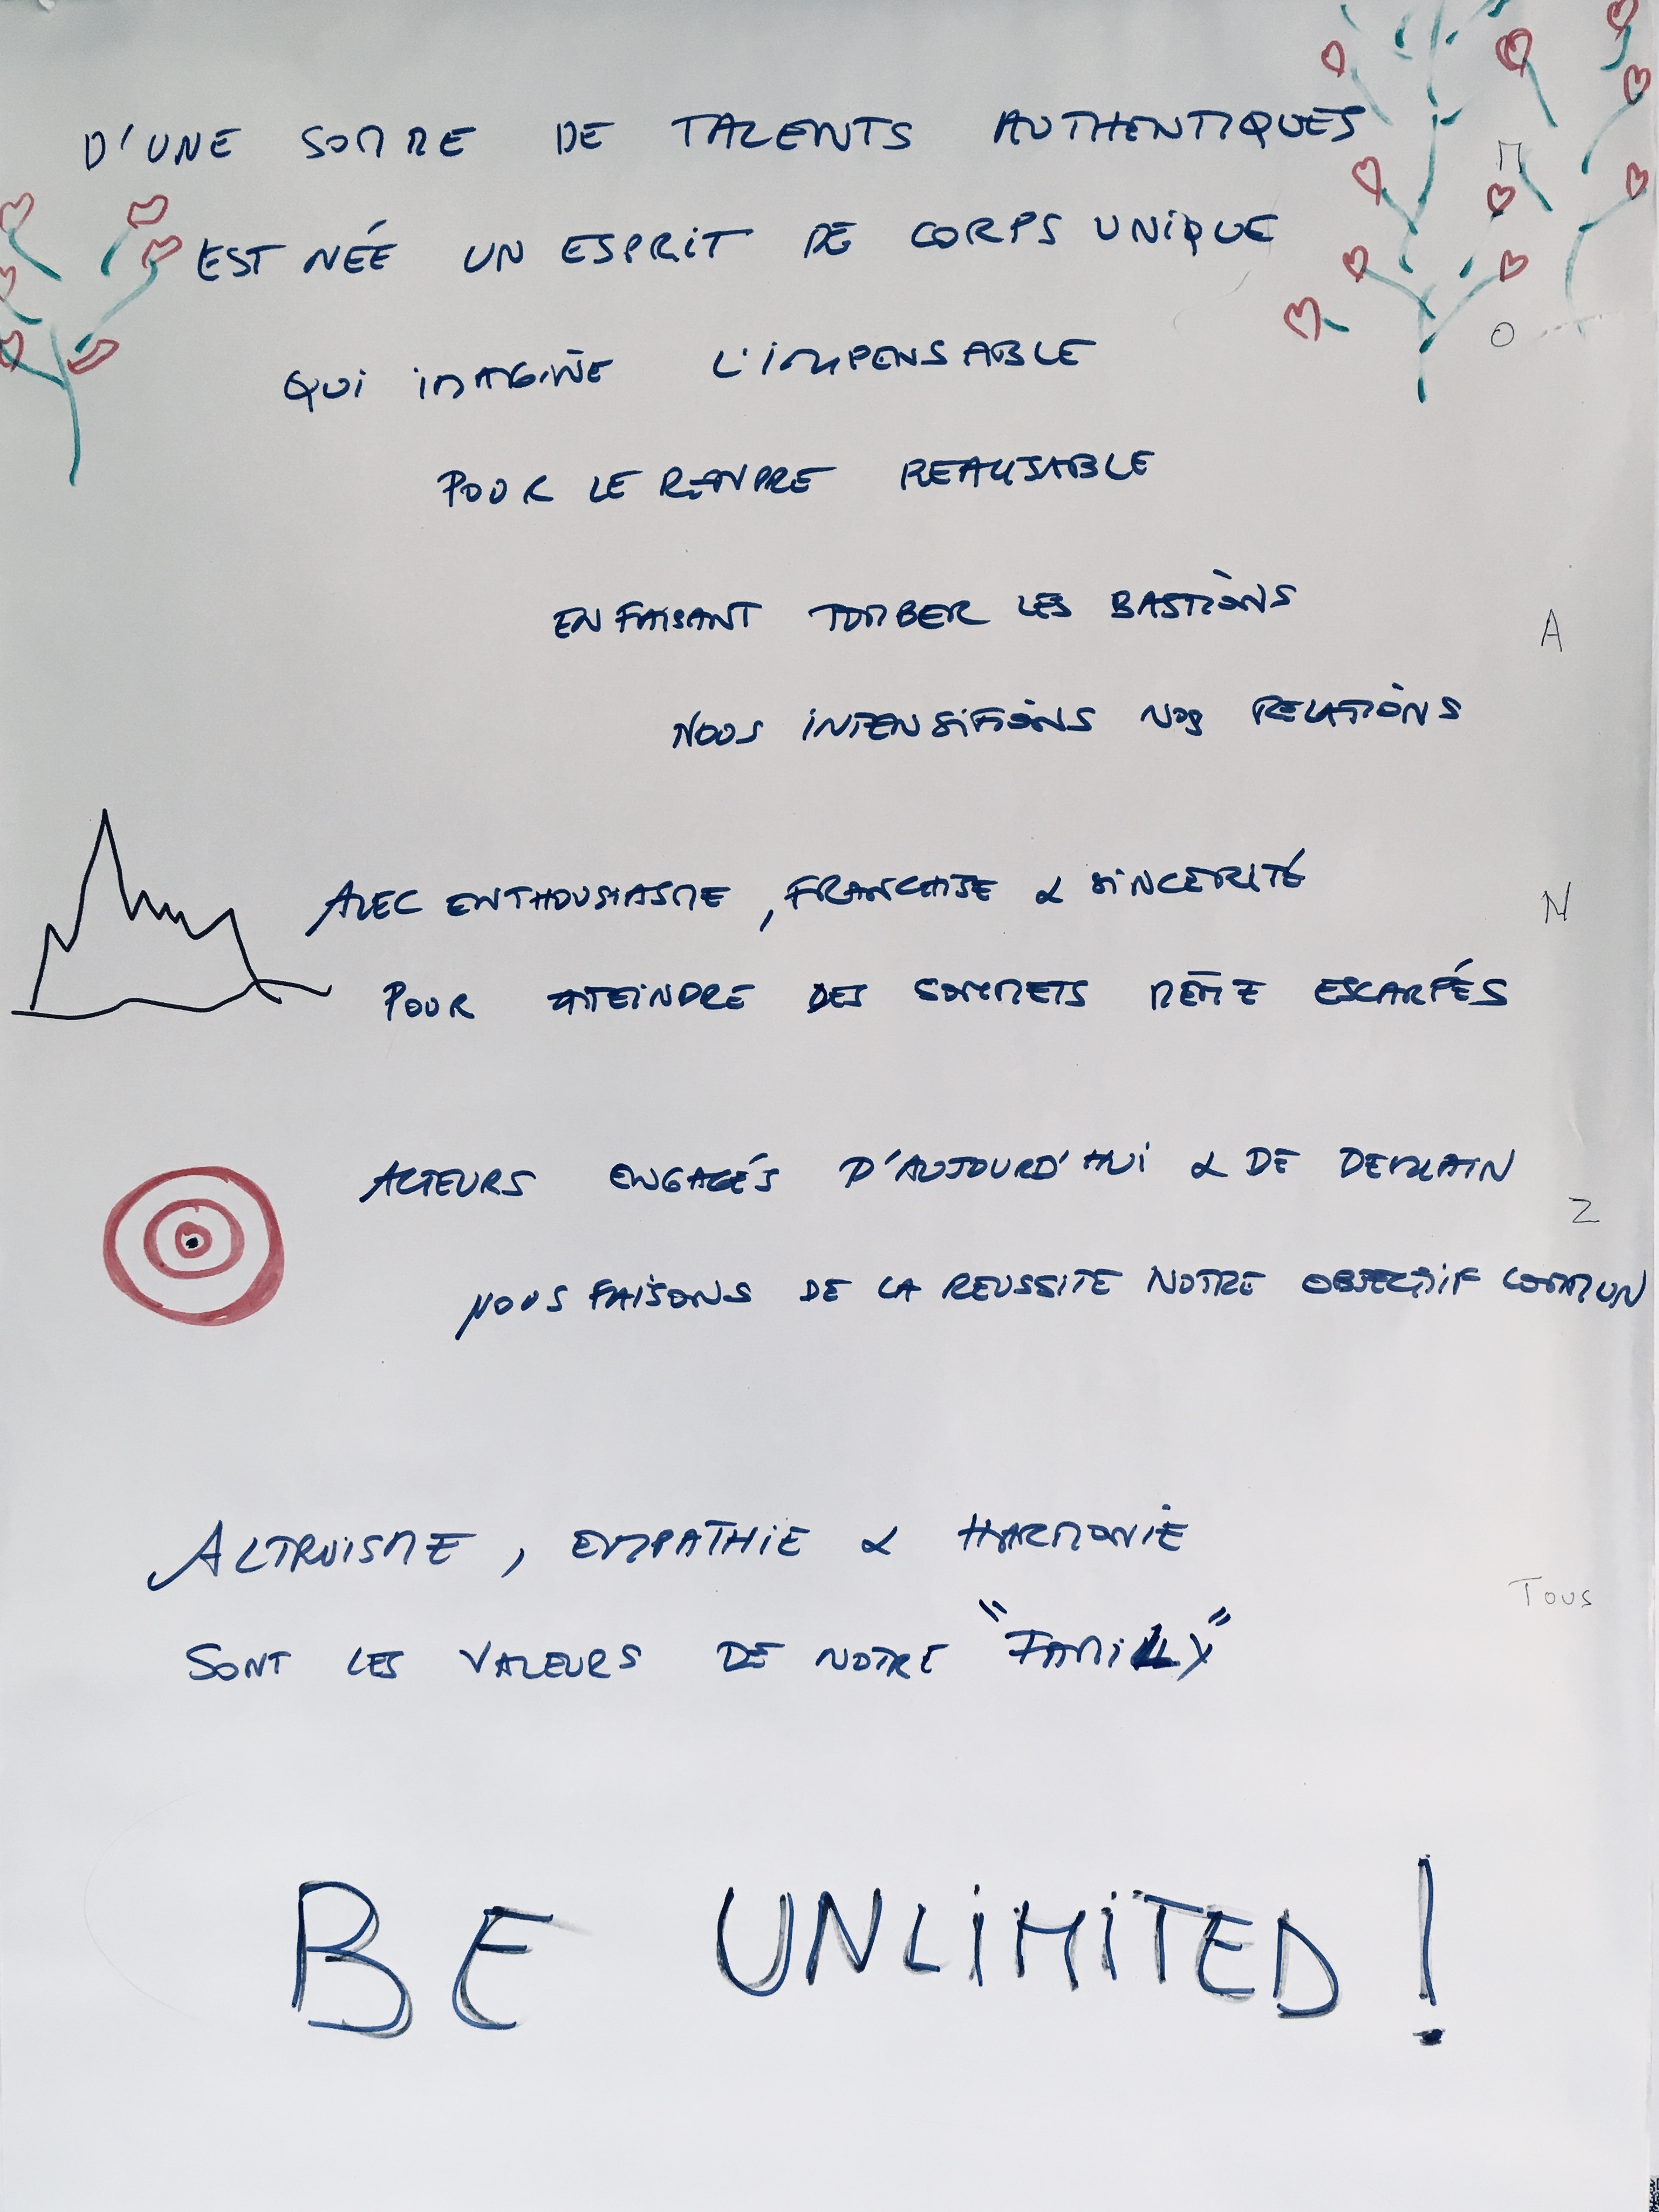 D'UNE SOMME DE TALENTS AUTHENTIQUES
M
EST NÉE UN ESPRIT DE CORPS UNIQUE
O
QUI IMAGINE L'IMPENSABLE
POUR LE RENDRE REALISABLE
EN FAISANT TOMBER LES BASTIONS
A
NOUS INTENSIFIONS NOS RELATIONS
AVEC ENTHOUSIASME, FRANCHISE & SINCERITÉ
N
POUR ATTEINDRE DES SOMMETS MÊME ESCARPÉS
ACTEURS ENGAGÉS D'AUJOURD'HUI & DE DEMAIN
Z
NOUS FAISONS DE LA REUSSITE NOTRE OBJECTIF COMMUN
ALTRUISME, EMPATHIE & HARMONIE
TOUS
SONT LES VALEURS DE NOTRE "FAMILLY"
BE UNLIMITED !